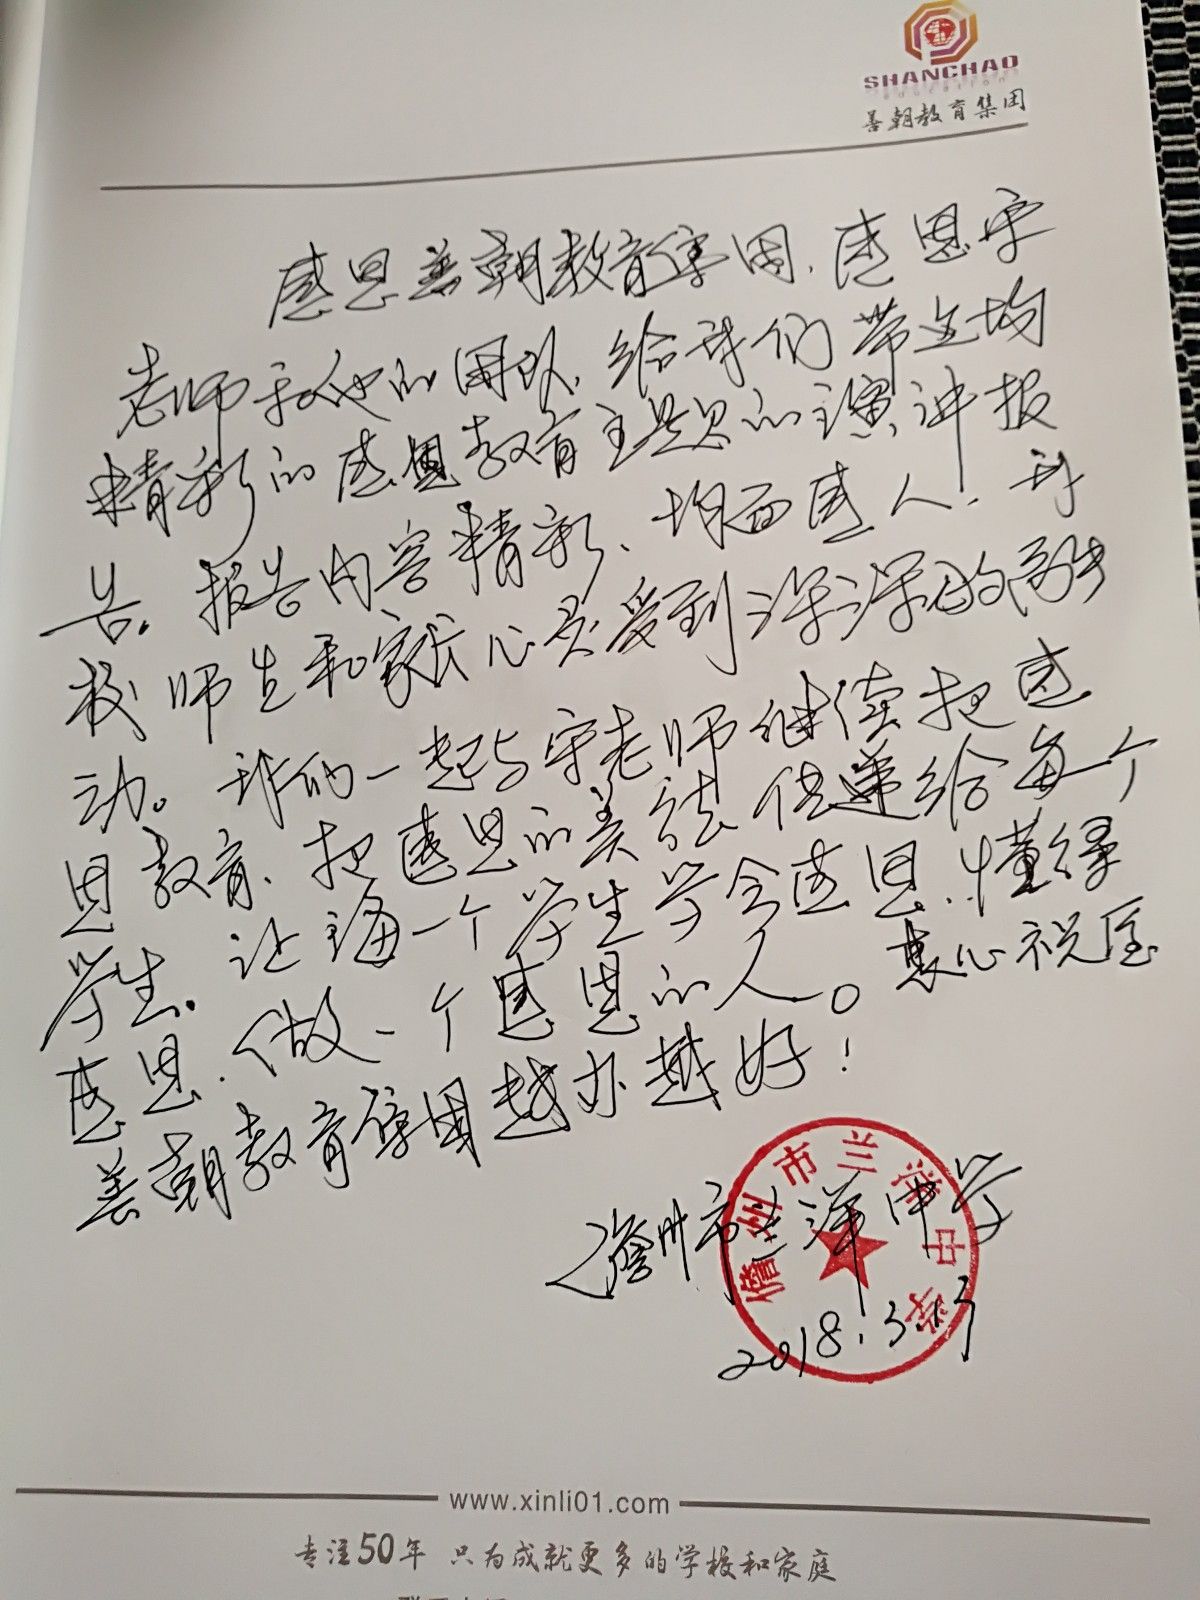 SHANCHAO
education
善朝教育集团
感恩善朝教育集团、感恩宇
老师和他的团队、给我们带来场
精彩的感恩教育主题的演讲报
告。报告内容精彩、场面感人、我
校师生和家长心灵受到深深的触
动。我们一起与宇老师继续把感
恩教育、把感恩的美德传递给每一个
学生。让每一个学生学会感恩、懂得
感恩、做一个感恩的人。衷心祝愿
善朝教育集团越办越好！
儋州市兰洋中学
儋州市兰洋中学
2018.3.
www.xinli01.com
专注50年 只为成就更多的学校和家庭